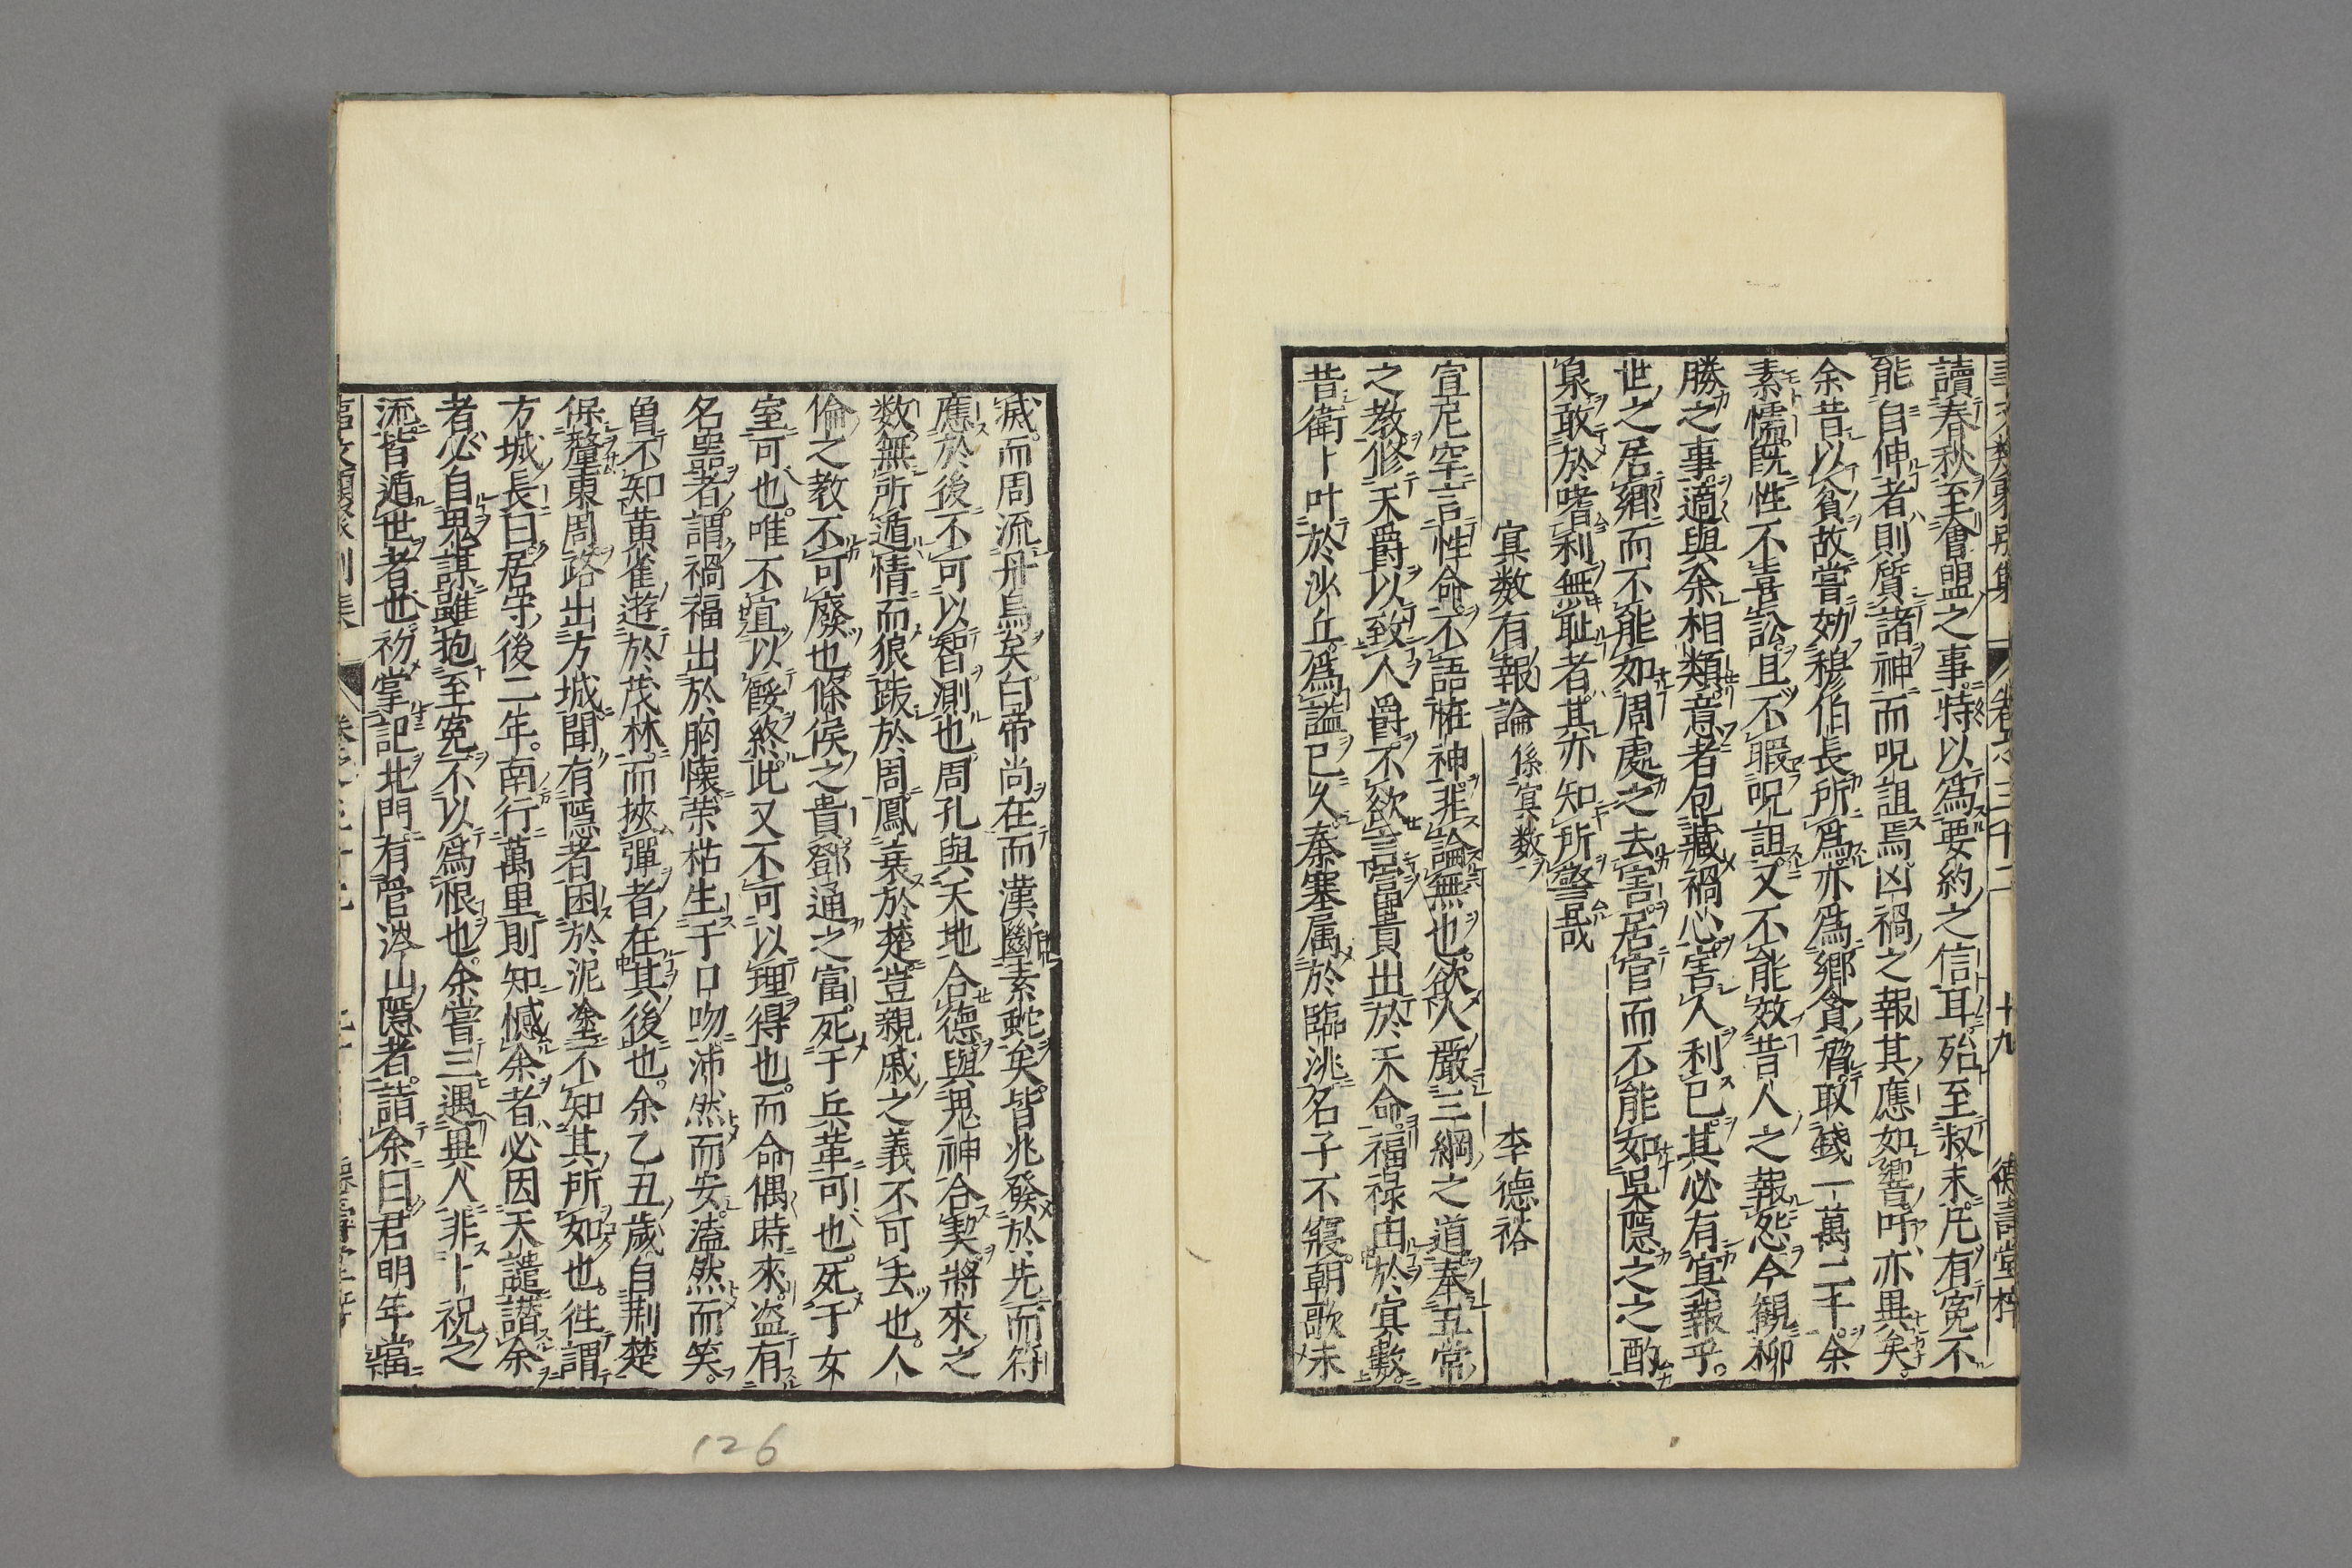 讀春秋至會盟之事特以爲要約之信耳殆至叔末凡有寃不
能自伸者則質諸神而呪詛焉凶禍之報其應如響吁亦異矣。
余昔以貧故嘗効穆伯長所爲亦爲鄉貪脅取錢一萬二千余
素懦既性不喜訟且不暇呪詛又不能效昔人之報怨今觀柳
勝之事適與余相類意者包藏禍心害人利已其必有冥報乎。
世之居鄉而不能如周處之去害居官而不能如吳隠之之酌
泉敢於嗜利無耻者其亦知所警哉
冥数有報論 係冥数 李德裕
宣尼罕言性命不語恠神非論無也欲人嚴三綱之道奉五常
之教修天爵以致人爵不欲言富貴出於天命福禄由於冥數
昔衛卜叶於沙丘爲謚已久秦塞属於臨洮名子不寤朝歌未
滅而周流丹烏矣白帝尚在而漢斷素蛇矣皆兆發於先而符
應於後不可以智測也周孔與天地合德與鬼神合契將來之
数無所遁情而狼跋於周鳳衰於楚豈親戚之義不可去也人
倫之教不可廢也條侯之貴鄧通之富死于兵革可也死于女
室可也唯不宜以餒終此又不可以理得也而命偶時來盗有
名噐者謂禍福出於胷懐荣枯生于口吻沛然而安溘然而笑。
曾不知黄雀遊於茂林而挾彈者在其後也余乙丑歲自荆楚
保釐東周路出方城聞有隠者困於泥塗不知其所如也徃謂
方城長曰居守後二年南行萬里則知憾余者必因天譴譖余
者必自鬼謀雖抱至寃不以爲恨也余嘗三遇異人非卜祝之
流皆遁世者也初掌記北門有管涔山隠者詣余曰君明年當